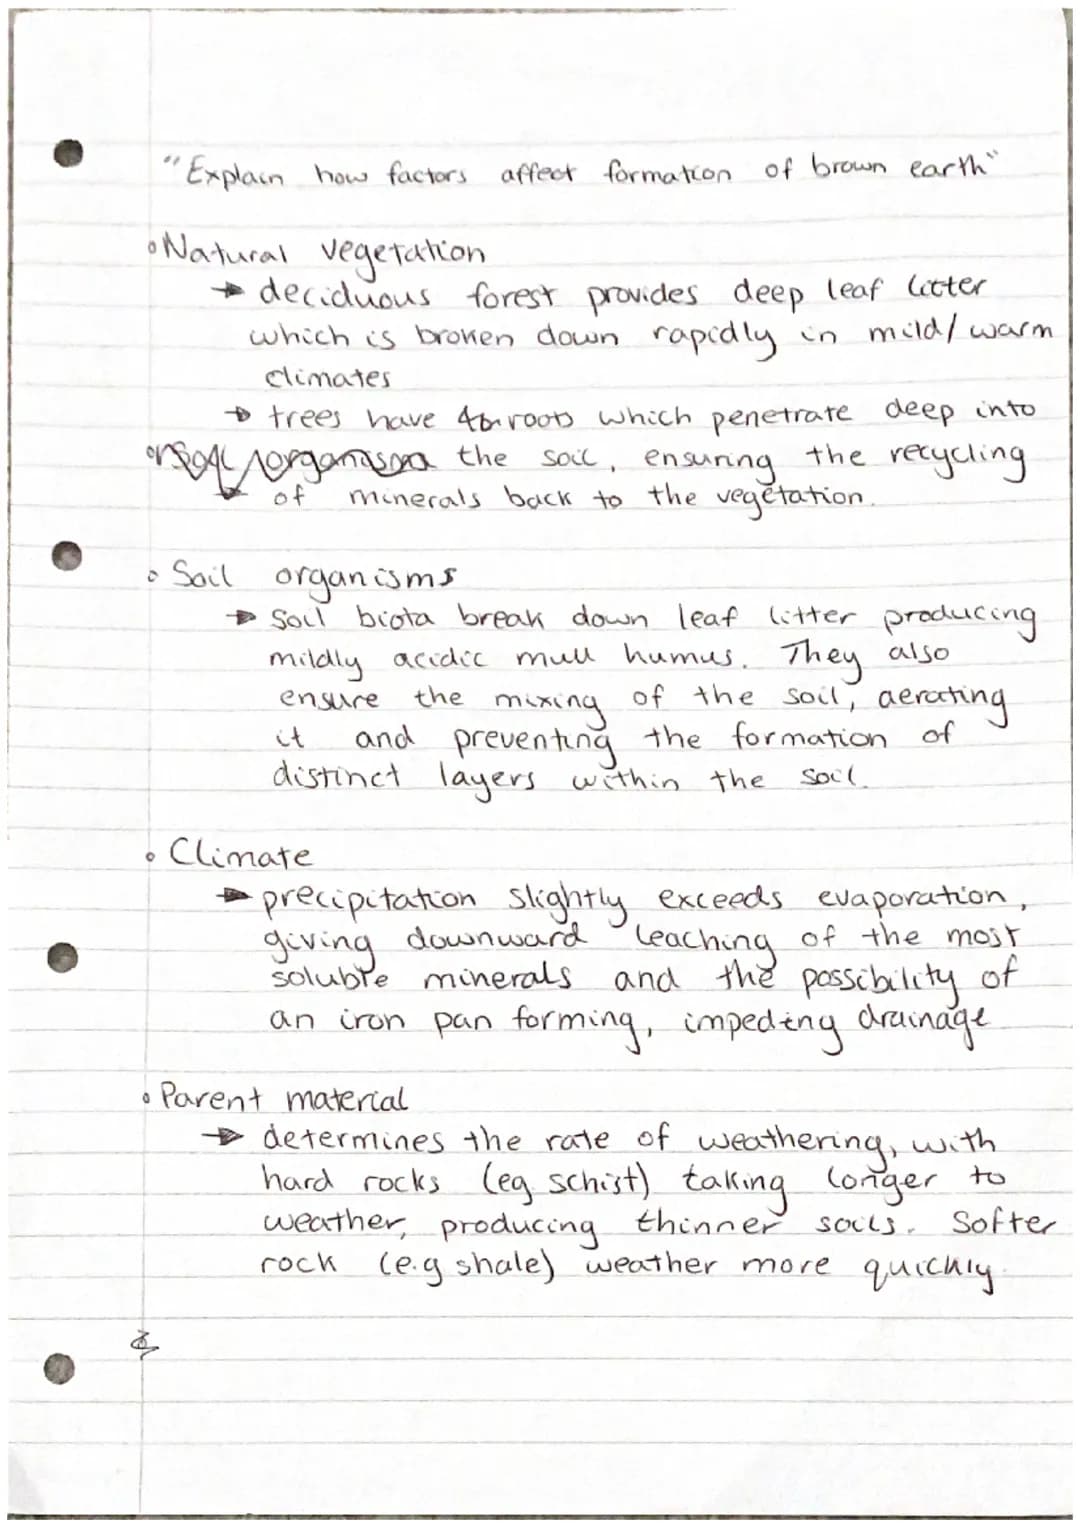 "Explain how factors affect formation of brown earth"
• Natural vegetation
→ deciduous forest provides deep leaf litter
which is broken down rapidly in mild/warm
climates
→ trees have roots which penetrate deep into
the soil, ensuring the recycling
of minerals back to the vegetation.
• Soil organisms
→ Soil biota break down leaf litter producing
mildly acidic mull humus. They also
ensure the mixing of the soil, aerating
it and preventing the formation of
distinct layers within the soil.
• Climate
→ precipitation slightly exceeds evaporation,
giving downward leaching of the most
soluble minerals and the possibility of
an iron pan forming, impeding drainage
• Parent material
→ determines the rate of weathering, with
hard rocks (eg. schist) taking longer to
weather, producing thinner soils. Softer
rock (e.g shale) weather more quickly.